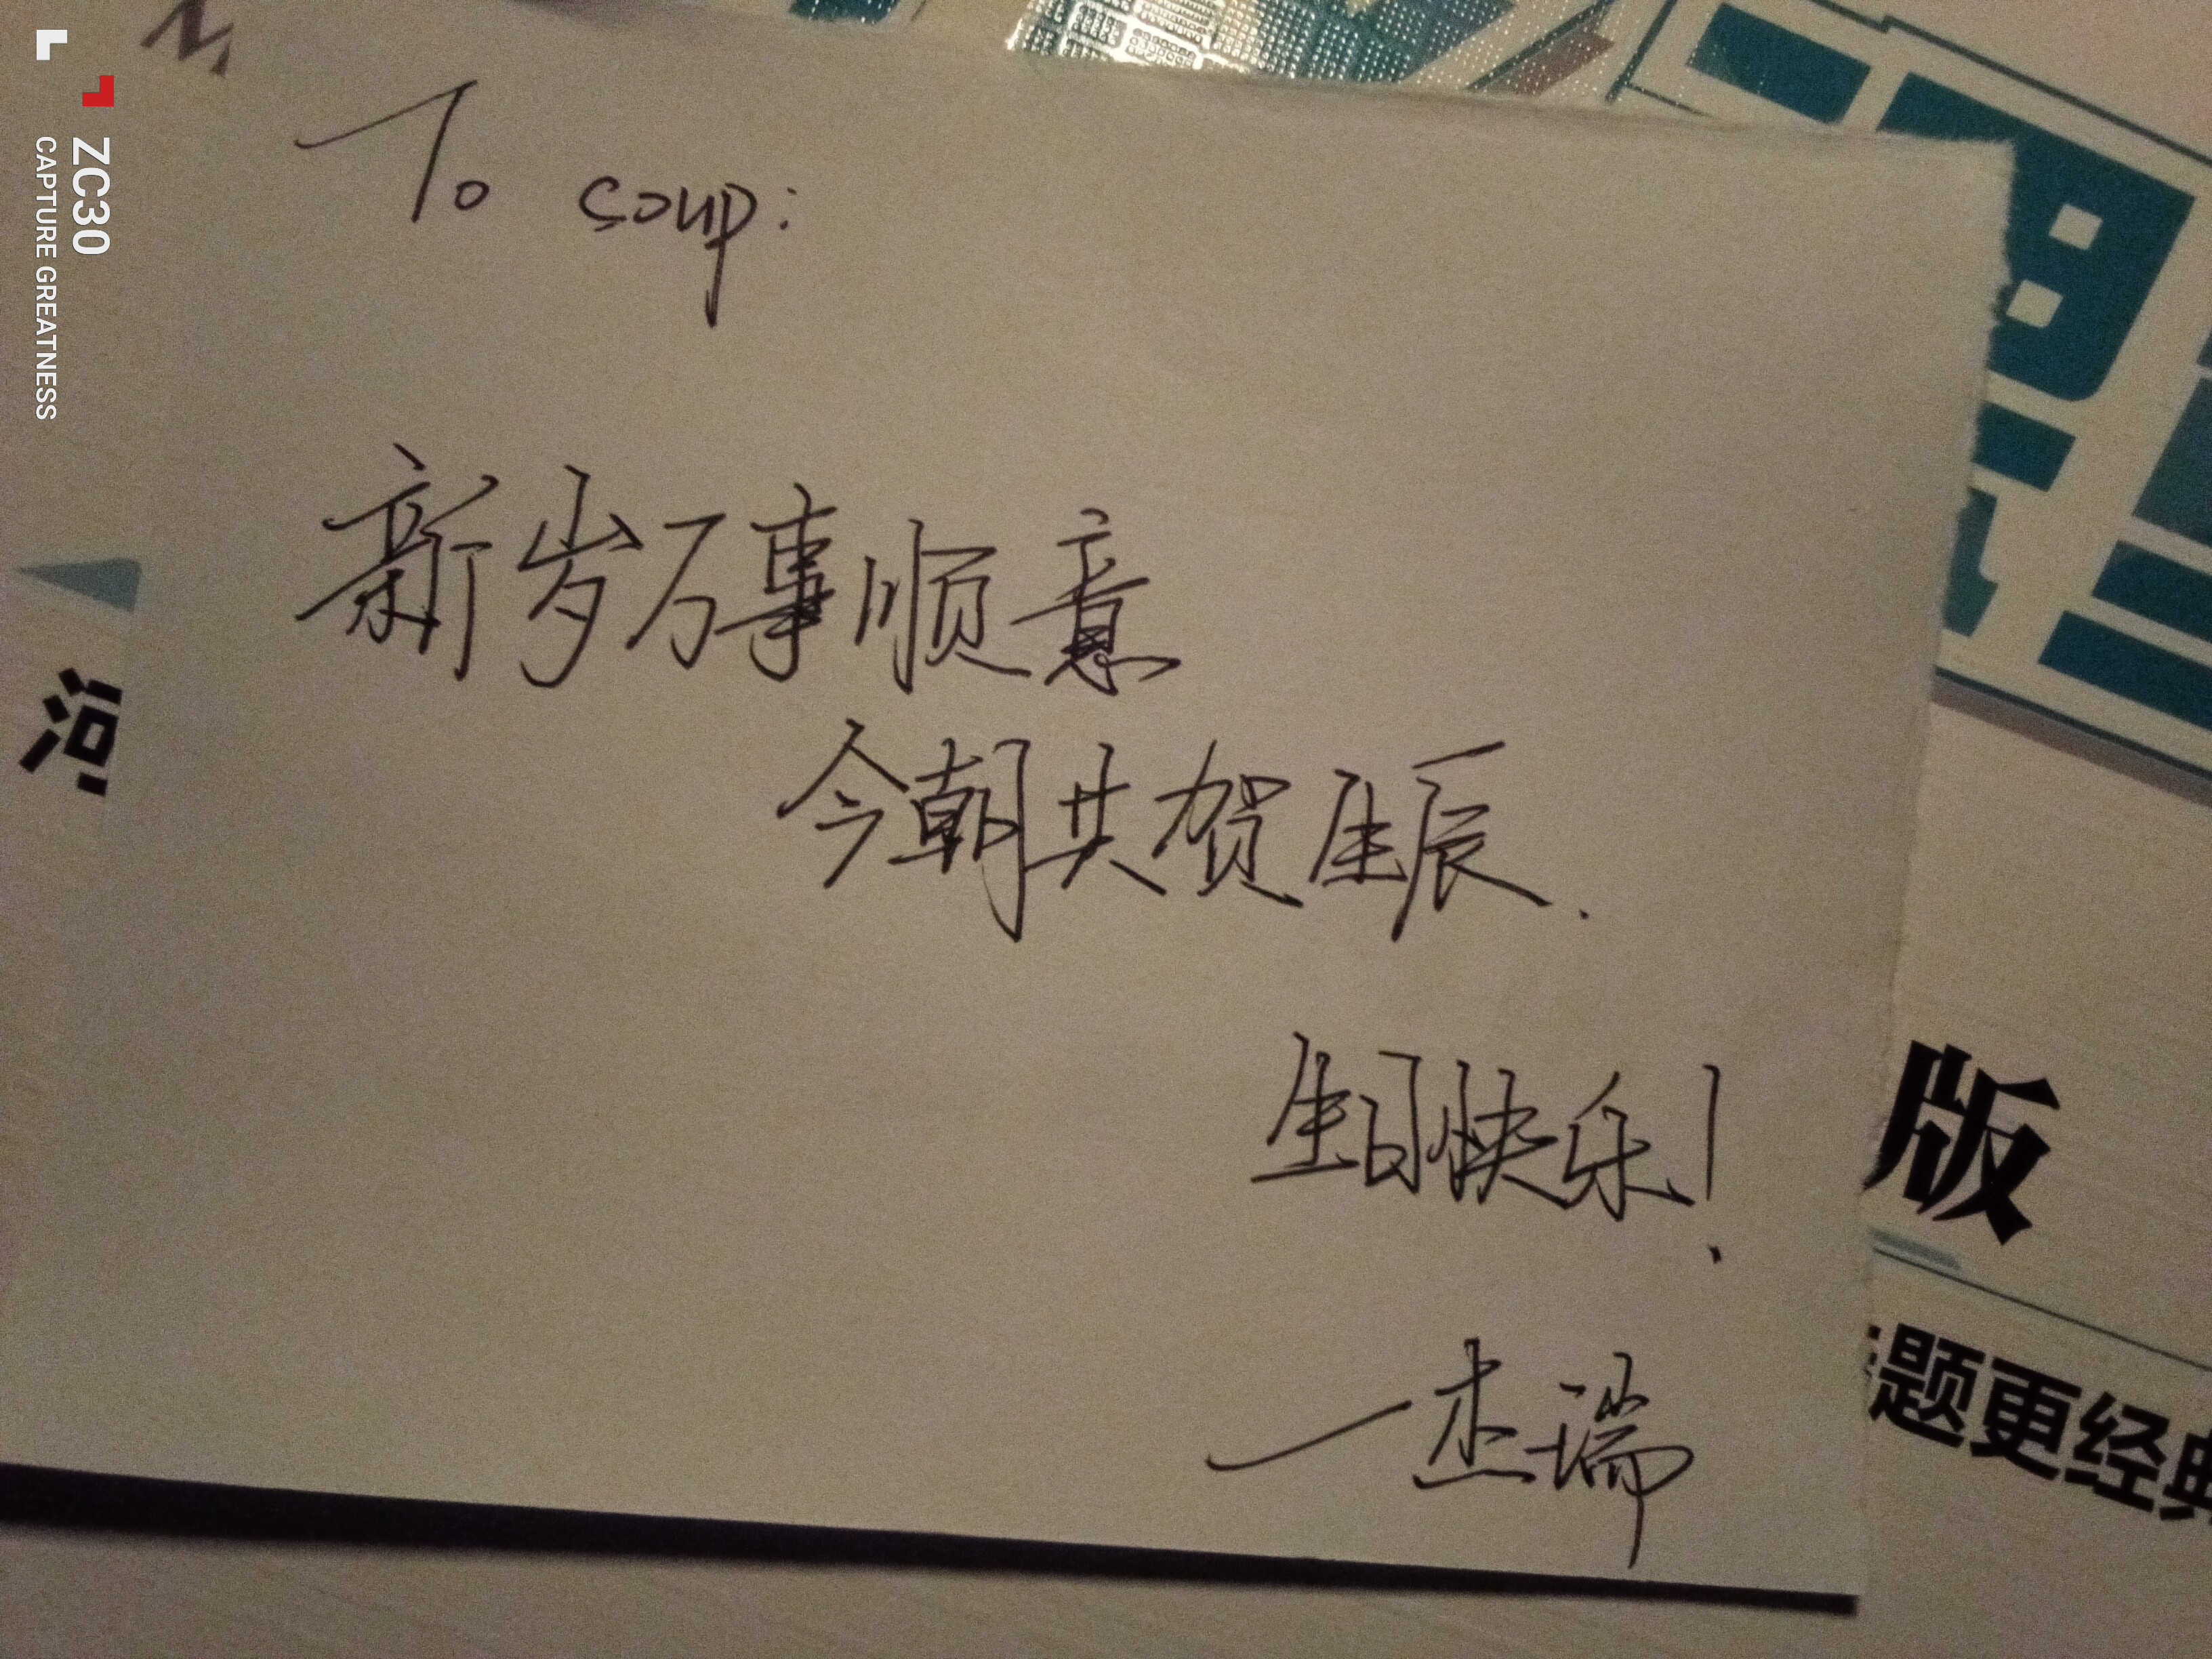 To soup:
新岁万事顺意
今朝共贺生辰.
生日快乐!
—杰瑞
版
题更经典
ZC30
CAPTURE GREATNESS